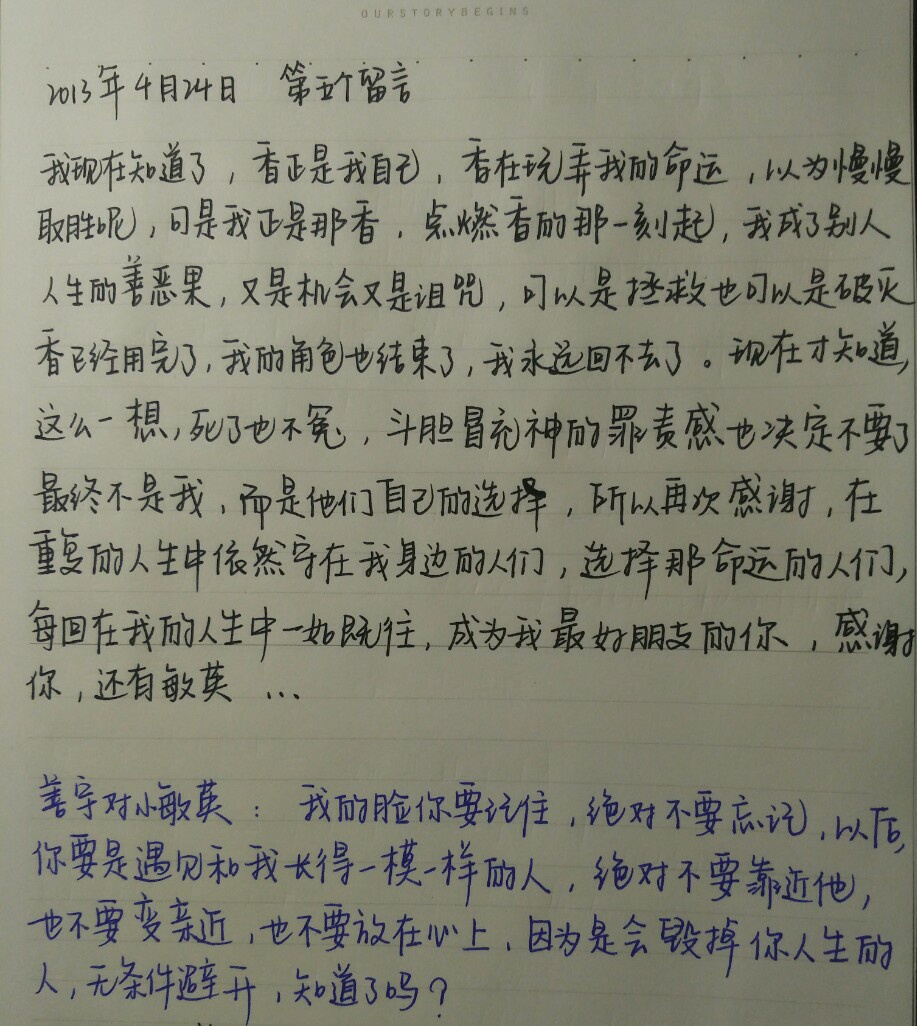 OURSTORYBEGINS
2013年4月24日 第五个留言
我现在知道了，香正是我自己，香在玩弄我的命运，以为慢慢
取胜呢，可是我正是那香，点燃香的那一刻起，我成了别人
人生的善恶果，又是机会又是诅咒，可以是拯救也可以是破灭
香已经用完了，我的角色也结束了，我永远回不去了。现在才知道，
这么一想，死了也不冤，斗胆冒充神的罪责感也决定不要了
最终不是我，而是他们自己的选择，所以再次感谢，在
重复的人生中依然守在我身边的人们，选择那命运的人们，
每回在我的人生中一如既往，成为我最好朋友的你，感谢
你，还有敏英 …
善宇对小敏英：我的脸你要记住，绝对不要忘记，以后，
你要是遇见和我长得一模一样的人，绝对不要靠近他，
也不要变亲近，也不要放在心上，因为是会毁掉你人生的
人，无条件避开，知道了吗？